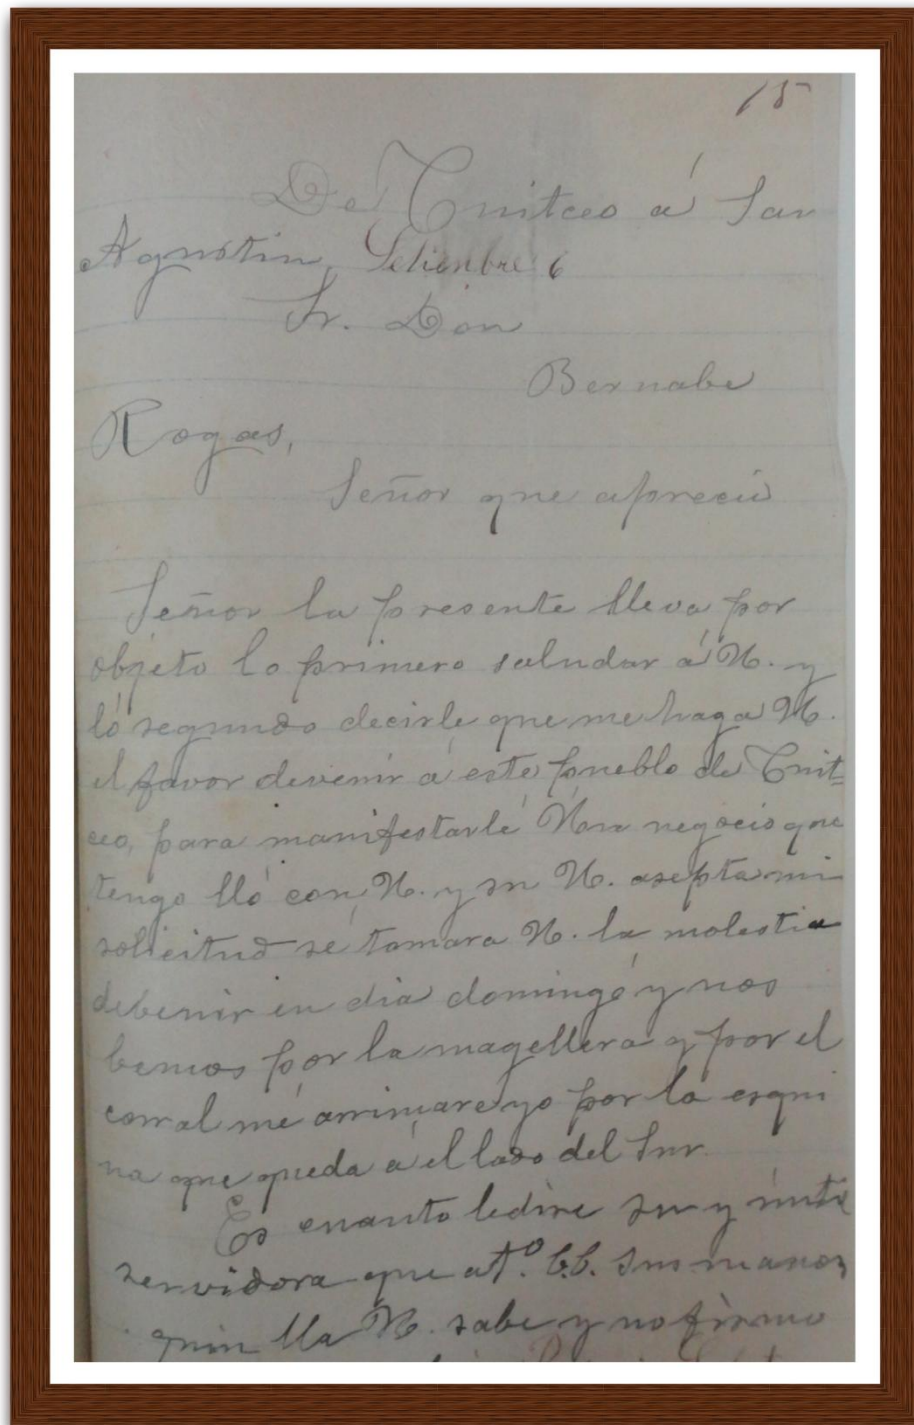 15
De Cuitceo á San
Agustin, Setienbre 6
Sr. Don
Bernabe
Rogas,
Señor que apreciú
Señor la presente lleva por
objeto lo primero saludar á U. y
ló segundo decirle que me haga U.
el favor devenir á este pueblo de Cuit=
ceo, para manifestarle Uun negocio que
tengo lló con U. y su U. asepta mi
solicitud se tomara U. la molestia
debenir en dia domingo y nos
bemos por la magellera y por el
corral me arrimare yo por la esqui
na que queda á el lado del Sur.
Es cuanto ledire su y
servidora que at.º b.b. sus manos
quin lla U. sabe y no firmo